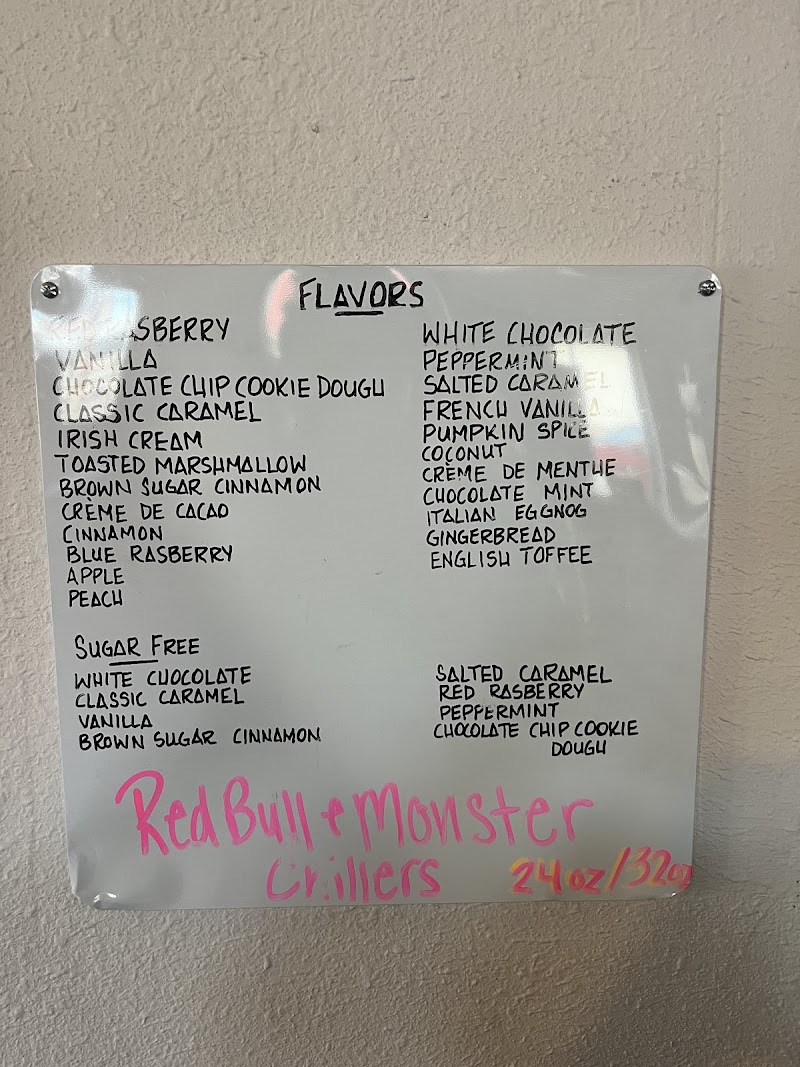 FLAVORS
RED RASBERRY
VANILLA
CHOCOLATE CHIP COOKIE DOUGH
CLASSIC CARAMEL
IRISH CREAM
TOASTED MARSHMALLOW
BROWN SUGAR CINNAMON
CRÈME DE CACAO
CINNAMON
BLUE RASBERRY
APPLE
PEACH
WHITE CHOCOLATE
PEPPERMINT
SALTED CARAMEL
FRENCH VANILLA
PUMPKIN SPICE
COCONUT
CRÈME DE MENTHE
CHOCOLATE MINT
ITALIAN EGGNOG
GINGERBREAD
ENGLISH TOFFEE
SUGAR FREE
WHITE CHOCOLATE
CLASSIC CARAMEL
VANILLA
BROWN SUGAR CINNAMON
SALTED CARAMEL
RED RASBERRY
PEPPERMINT
CHOCOLATE CHIP COOKIE
DOUGH
Red Bull + Monster
Chillers 24oz/32oz